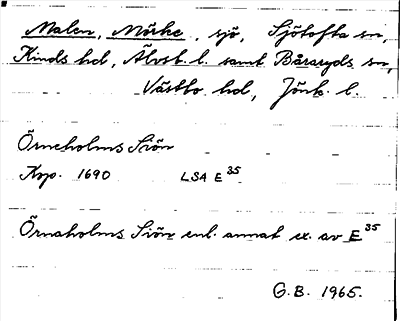 Malen, Mörke, sjö, Sjötofta sn,
Kinds hd, Älvsb. l. samt Båraryds sn,
Västbo hd, Jönk. l.
Örneholms Siön
Kop. 1690 LSA E 35
Örnaholms Siön enl. annat ex. av E 35
G.B. 1965.